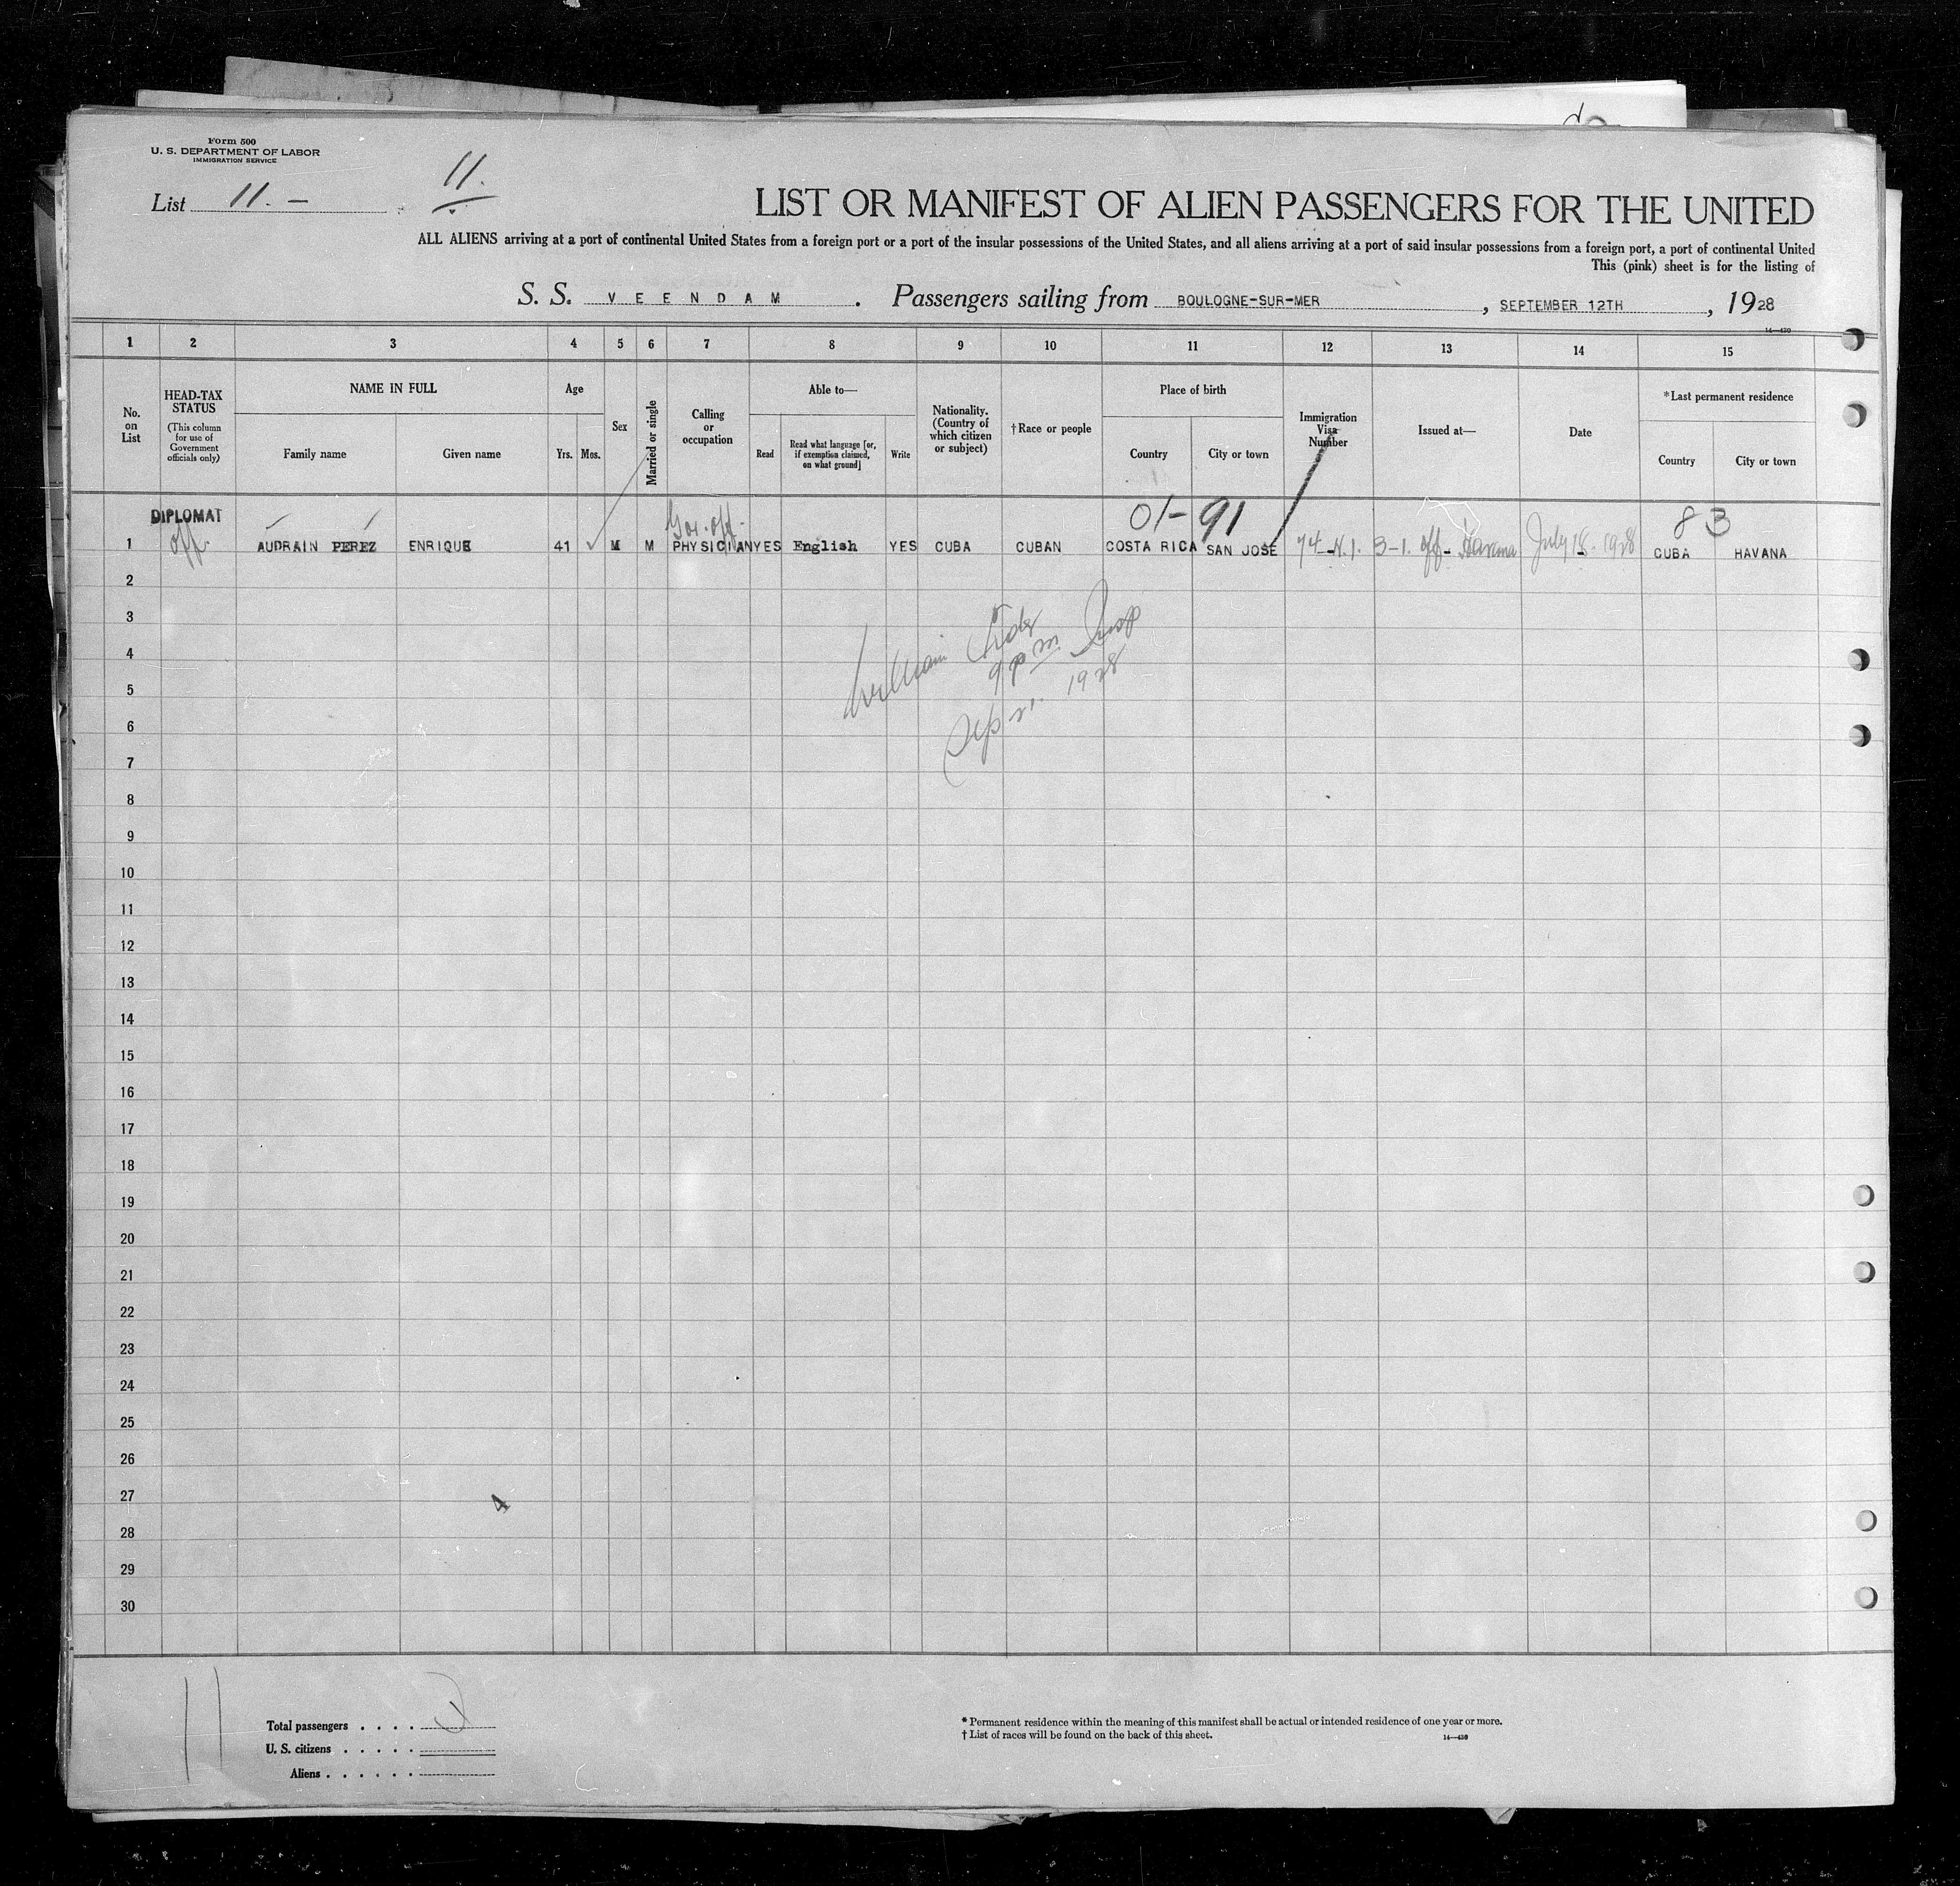 Form 500
U. S. DEPARTMENT OF LABOR
IMMIGRATION SERVICE
List 11. –
11.
LIST OR MANIFEST OF ALIEN PASSENGERS FOR THE UNITED
ALL ALIENS arriving at a port of continental United States from a foreign port or a port of the insular possessions of the United States, and all aliens arriving at a port of said insular possessions from a foreign port, a port of continental United
This (pink) sheet is for the listing of
S. S. VEENDAM . Passengers sailing from BOULOGNE-SUR-MER , SEPTEMBER 12TH , 1928
14—430
1 2 3 4 5 6 7 8 9 10 11 12 13 14 15
No. on List
HEAD-TAX STATUS
(This column for use of Government officials only)
NAME IN FULL
Family name
Given name
Age
Yrs.
Mos.
Sex
Married or single
Calling or occupation
Able to—
Read
Read what language [or, if exemption claimed, on what ground]
Write
Nationality. (Country of which citizen or subject)
† Race or people
Place of birth
Country
City or town
Immigration Visa Number
Issued at—
Date
* Last permanent residence
Country
City or town
DIPLOMAT
Gov. off-
01-91
83
1 off AUDRAIN PEREZ ENRIQUE 41 M M PHYSICIAN YES English YES CUBA CUBAN COSTA RICA SAN JOSE 74 3-1. off- Havana July 18-1928 CUBA HAVANA
2
3
William
4
9 pm Insp
5
Sep 21. 1928
6
7
8
9
10
11
12
13
14
15
16
17
18
19
20
21
22
23
24
25
26
27
4
28
29
30
11
Total passengers . . . .
U. S. citizens . . . . .
Aliens . . . . . .
* Permanent residence within the meaning of this manifest shall be actual or intended residence of one year or more.
† List of races will be found on the back of this sheet.
14—430